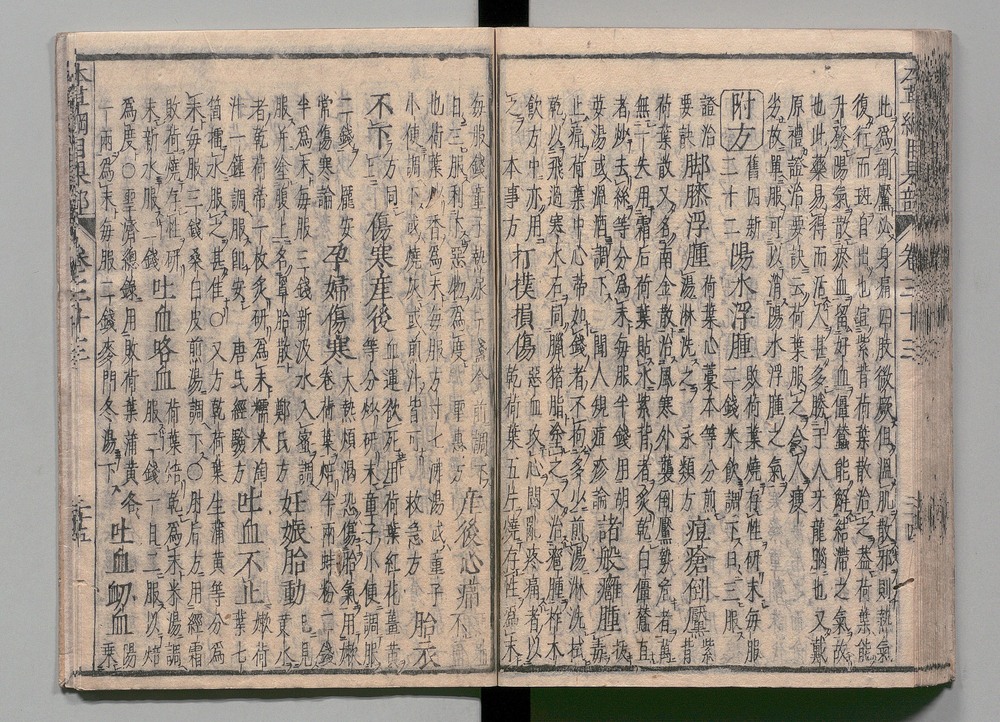 此爲倒黶必身痛四肢微厥但溫肌散邪則熱氣
復行而斑自出也宜紫背荷葉散治之蓋荷葉能
升發陽氣散瘀血留好血僵蠶能解結滯之氣故
也此藥易得而活人甚多勝于人牙龍腦也又戴
原禮證治要訣云荷葉服之令人瘦
劣故單服可以消陽水浮腫之氣
附方
舊四新二十二
陽水浮腫
敗荷葉燒存性研末每服二錢米飲調下日三服
證治要訣
脚膝浮腫
荷葉心藁本等分煎湯淋洗之
永類方
痘瘡倒黶
紫背荷葉散又名南金散治風寒外襲倒黶勢危者萬
無一失用霜后荷葉貼水紫背者炙乾白僵蠶直
者炒去絲等分爲末每服半錢用胡
荽湯或溫酒調下
聞人規痘疹論
諸般癰腫
拔毒
止痛荷葉中心蒂如錢者不拘多少煎湯淋洗拭
乾以飛過寒水石同臘豬脂塗之又治癰腫柞木
飲方中亦用之
本事方
打撲損傷
惡血攻心悶亂疼痛者以
乾荷葉五片燒存性爲末
每服錢童子熱尿一盞食前調下
日三服利下惡物爲度
聖惠方
産後心痛
惡血不盡
也荷葉炒香爲末每服方寸匕沸湯或童子
小便調下或燒灰或煎汁皆可
救急方
胎衣
不下
方同上
傷寒産後
血運欲死用荷葉紅花薑黄
等分炒研末童子小便調服
二錢
龐安
常傷寒論
孕婦傷寒
大熱煩渴恐傷胎氣用嫩
卷荷葉焙半兩蚌粉二錢
半爲末每服三錢新汲水入蜜調
服并塗腹上名罩胎散
鄭氏方
妊娠胎動
已見
黄水
者乾荷蒂一枚炙研爲末糯米淘
汁一鍾調服即安
唐氏經驗方
吐血不止
嫩荷
葉七
箇擂水服之甚佳○又方乾荷葉生蒲黄等分爲
末每服三錢桑白皮煎湯調下○肘后方用經霜
敗荷燒存性研
末新水服二錢
吐血略血
荷葉焙乾爲末米湯調
服二錢一日二服以
爲度○聖濟總錄用敗荷葉蒲黄各
一兩爲末每服二錢麥門冬湯下
吐血衂血
陽
乘